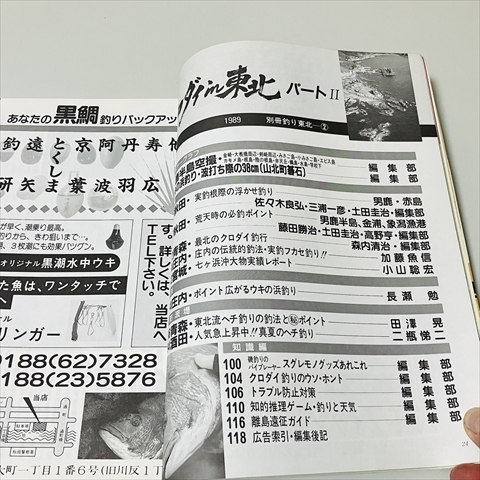 あなたの黒鯛釣りバックアップ
釣遠京丹伸寿
とくしま
研矢葉波羽広
オリジナル黒潮水中ウキ
た魚は、ワンタッチで
リンガー
す。詳しくは、当店へ
TEL下さい。
0188(62)7328
0188(23)5876
当店
大町一丁目1番6号(旧川反1丁
ダイin東北 パートII
1989 別冊釣り東北―②
半島空撮・ 編集部
浜釣り・波打ち際の38cm(山北町碁石) 編集部
実釣根際の浮かせ釣り 男鹿・赤島
佐々木良弘・三浦一彦・土田圭治・編集部
荒天時の必釣ポイント 男鹿半島、金浦、象潟漁港
藤田勝治・土田圭治・高野亨・編集部
最北のクロダイ釣行 森内清治・編集部
庄内の伝統的釣法・実釣フカセ釣り!! 加藤魚信
七ヶ浜沖大物実績レポート 小山聡宏
庄内・ポイント広がるウキの浜釣り 長瀬勉
青森・東北流ヘチ釣りの釣法と㊙ポイント 田澤晃
酒田・人気急上昇中!!真夏のヘチ釣り 二瓶悌二
知識編
100 磯釣りのバイプレーヤー スグレモノグッズあれこれ 編集部
104 クロダイ釣りのウソ・ホント 編集部
106 トラブル防止対策 編集部
110 知的推理ゲーム・釣りと天気 編集部
116 離島遠征ガイド 編集部
118 広告索引・編集後記